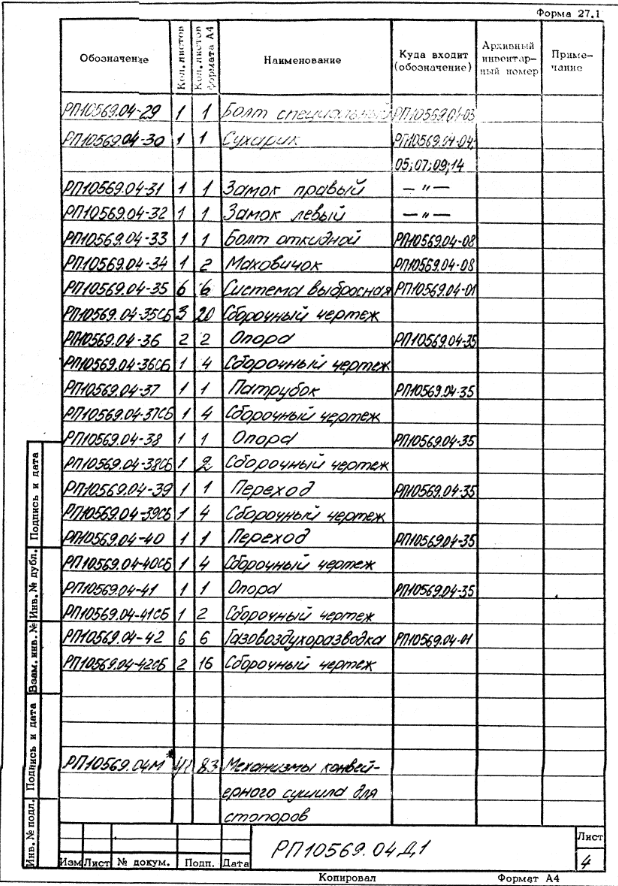 Форма 27.1
Обозначение Кол. листов Кол. листов формата А4 Наименование Куда входит (обозначение) Архивный инвентарный номер Примечание
РП10569.04-29 1 1 Болт специальный РП10569.04-03
РП10569.04-30 1 1 Сухарик РП10569.04-04;
05;07;09;14
РП10569.04-31 1 1 Замок правый — " —
РП10569.04-32 1 1 Замок левый — " —
РП10569.04-33 1 1 Болт откидной РП10569.04-08
РП10569.04-34 1 2 Маховичок РП10569.04-08
РП10569.04-35 6 6 Система выбросная РП10569.04-01
РП10569.04-35СБ 3 20 Сборочный чертеж
РП10569.04-36 2 2 Опора РП10569.04-35
РП10569.04-36СБ 1 4 Сборочный чертеж
РП10569.04-37 1 1 Патрубок РП10569.04-35
РП10569.04-37СБ 1 4 Сборочный чертеж
РП10569.04-38 1 1 Опора РП10569.04-35
РП10569.04-38СБ 1 2 Сборочный чертеж
РП10569.04-39 1 1 Переход РП10569.04-35
РП10569.04-39СБ 1 4 Сборочный чертеж
РП10569.04-40 1 1 Переход РП10569.04-35
РП10569.04-40СБ 1 4 Сборочный чертеж
РП10569.04-41 1 1 Опора РП10569.04-35
РП10569.04-41СБ 1 2 Сборочный чертеж
РП10569.04-42 6 6 Газовоздухоразводка РП10569.04-01
РП10569.04-42СБ 2 16 Сборочный чертеж
РП10569.04М* 41 83 Механизмы конвей-
ерного сушила для
стопоров
Инв. № подл. Подпись и дата Взам. инв. № Инв. № дубл. Подпись и дата
РП10569.04Д1
Лист
4
Изм Лист № докум. Подп. Дата
Копировал Формат А4